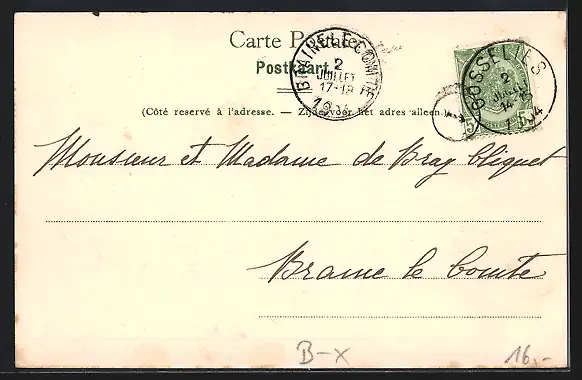 Carte Postale
Postkaart
BRAINE-LE-COMTE
2
JUILLET
17-18
GOSSELIES
2
JUILL
5 5
(Côté reservé à l'adresse. — Zijde voor het adres alleen.)
Monsieur et Madame de Bray Cliquet
Braine le Comte
B-X 16,-